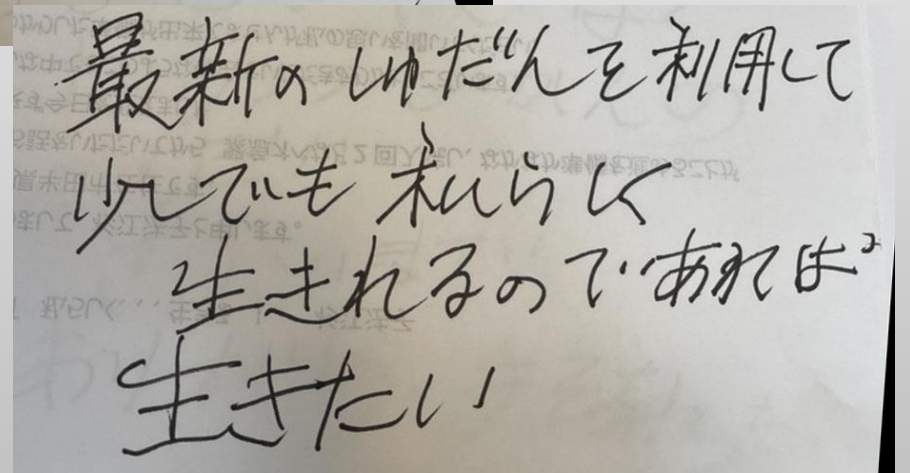 最新のしゅだんを利用して
少しでも私らしく
生きれるのであれば
生きたい